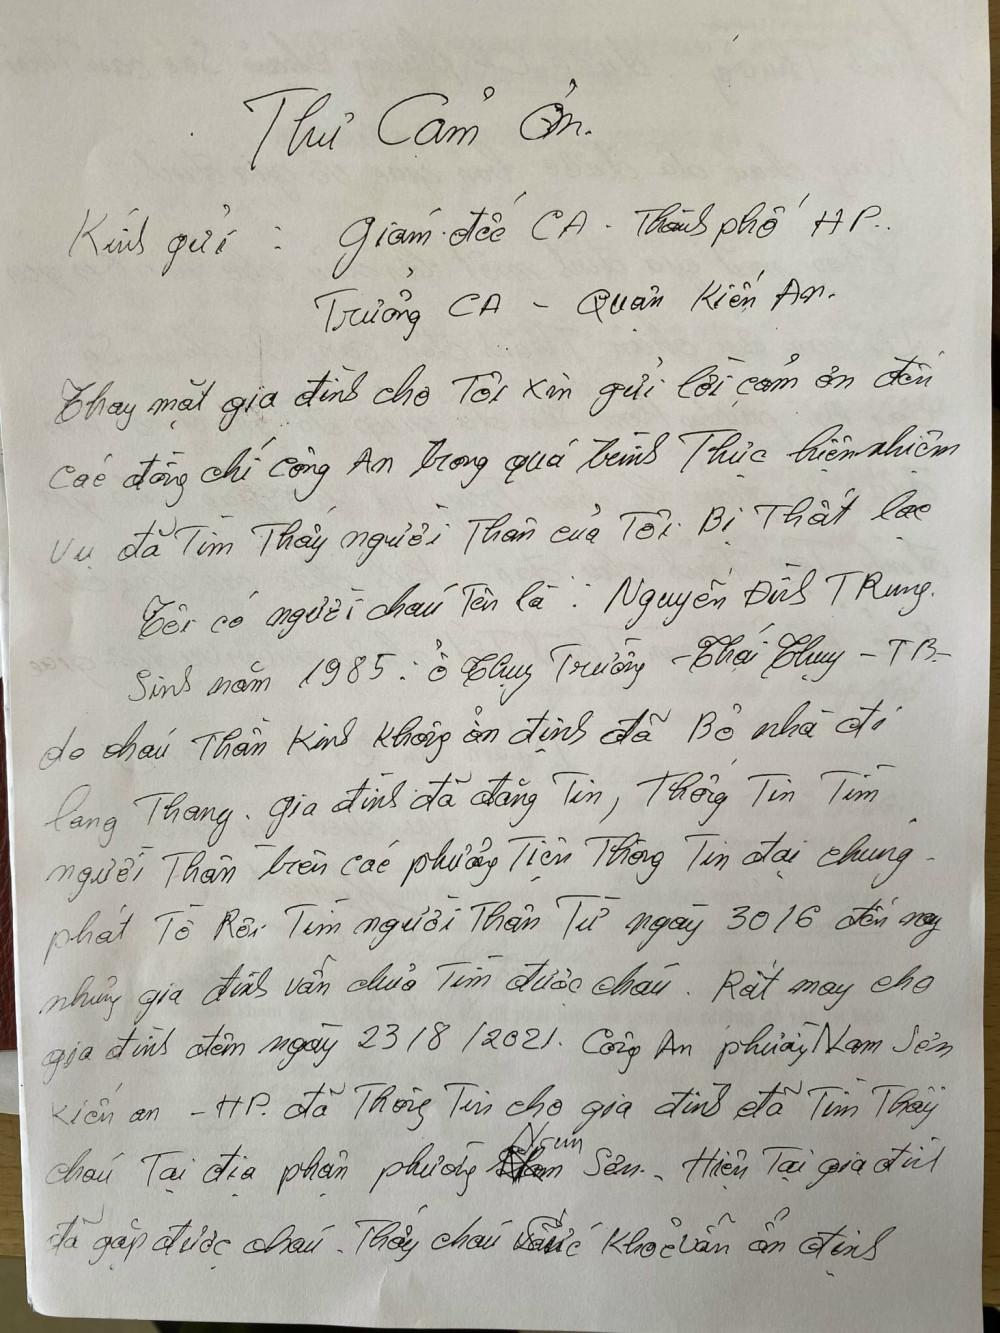 Thư Cảm Ơn.
Kính gửi : Giám đốc CA - Thành phố HP..
Trưởng CA - Quận Kiến An.
Thay mặt gia đình cho Tôi xin gửi lời cảm ơn đến
các đồng chí công An trong quá trình Thực hiện nhiệm
vụ đã Tìm Thấy người Thân của Tôi. Bị Thất lạc
Tôi có người cháu Tên là : Nguyễn Đình TRung.
Sinh năm 1985. ở Thụy Trường - Thái Thụy - TB-
do cháu Thần Kinh không ổn định đã Bỏ nhà đi
lang Thang. gia đình đã đăng Tin, Thông Tin Tìm
người Thân trên các phương Tiện Thông Tin đại chúng.
phát Tờ Rơi Tìm người Thân Từ ngày 30/6 đến nay
nhưng gia đình vẫn chưa Tìm được cháu. Rất may cho
gia đình đêm ngày 23/8/2021. Công An phường Nam Sơn
Kiến an - HP. đã Thông Tin cho gia đình đã Tìm Thấy
cháu Tại địa phận phường Nam Sơn. Hiện Tại gia đình
đã gặp được cháu. Thấy cháu khỏe vẫn ổn định